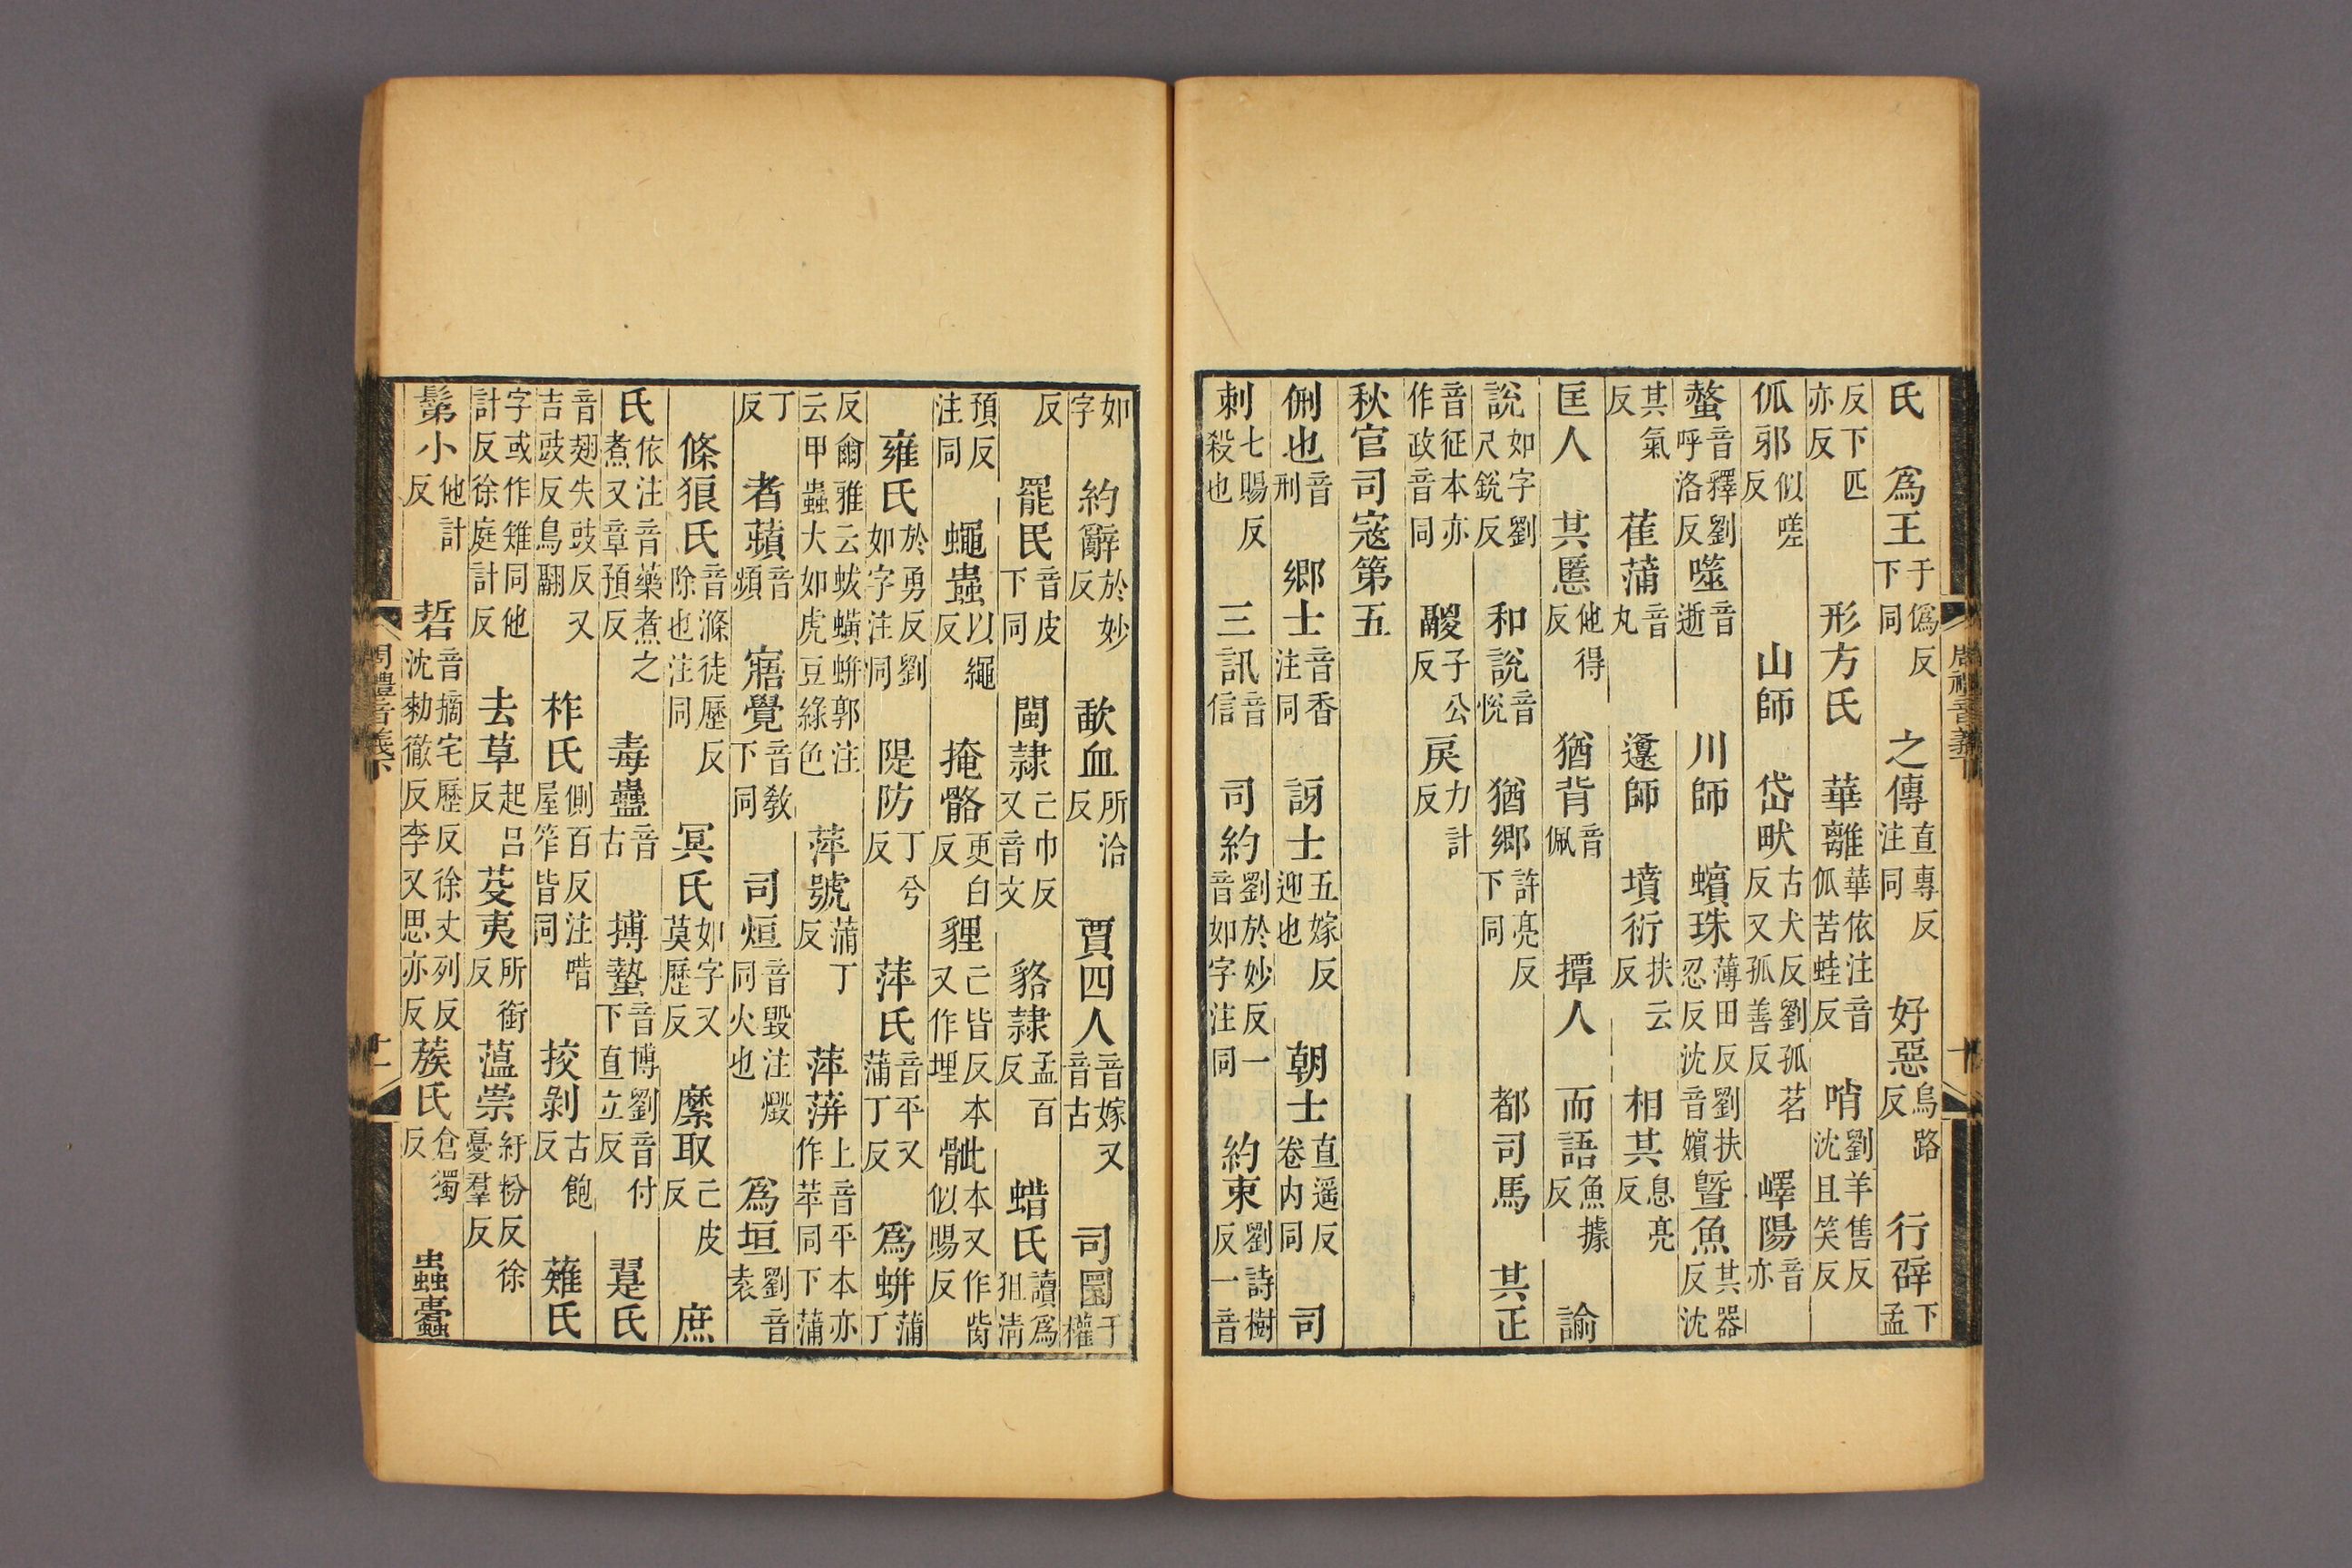 氏 爲王于僞反下同 之傳直專反注同 好惡烏路反 行辟下孟
反下匹亦反 形方氏 華離華依注音㼌苦蛙反 哨劉羊售反沈且笑反
㼌邪似嗟反 山師 岱畎古犬反劉孤茗反又孤善反 嶧陽音亦
螯音釋劉呼洛反 噬音逝 川師 蠙珠薄田反劉扶忍反沈音嬪 曁魚其器反沈
其氣反 萑蒲音丸 邍師 墳衍扶云反 相其息亮反
匡人 其慝他得反 猶背音佩 撢人 而語魚據反 諭
說如字劉尺銳反 和說音悅 猶鄉許亮反下同 都司馬 其正
音征本亦作政音同 鬷子公反 戾力計反
秋官司寇第五
侀也音刑 鄉士音香注同 訝士五嫁反迎也 朝士直遥反卷内同 司
刺七賜反殺也 三訊音信 司約劉於妙反一音如字注同 約束劉詩樹反一音
如字 約辭於妙反 歃血所洽反 賈四人音嫁又音古 司圜于權
反 罷民音皮下同 閩隷己巾反又音文 貉隷孟百反 蜡氏讀爲狙清
預反注同 蠅蟲以繩反 掩骼更白反 貍己皆反本又作埋 骴此本又作胔似賜反
雍氏於勇反劉如字注同 隄防丁兮反 萍氏音平又蒲丁反 爲蛢蒲丁
反爾雅云蛂蟥蛢郭注云甲蟲大如虎豆綠色 萍號蒲丁反 萍蓱上音平本亦作苹同下蒲
丁反 者蘋音頻 寤覺音敎下同 司烜音毀注燬同火也 爲垣劉音袁
條狼氏音滌徒歷反除也注同 冥氏如字又莫歷反 縻取亡皮反 庶
氏依注音藥煮之煮又章預反 毒蠱音古 搏蟄音博劉音付下直立反 翨氏
音翅失豉反又吉豉反鳥翮 柞氏側百反注唶屋笮皆同 挍剝古飽反 薙氏
字或作雉同他計反徐庭計反 去草起呂反 芟夷所銜反 薀崇紆粉反徐憂羣反
鬀小他計反 硩音摘宅歷反徐丈列反沈勑徹反李又思亦反 蔟氏倉獨反 蟲蠹